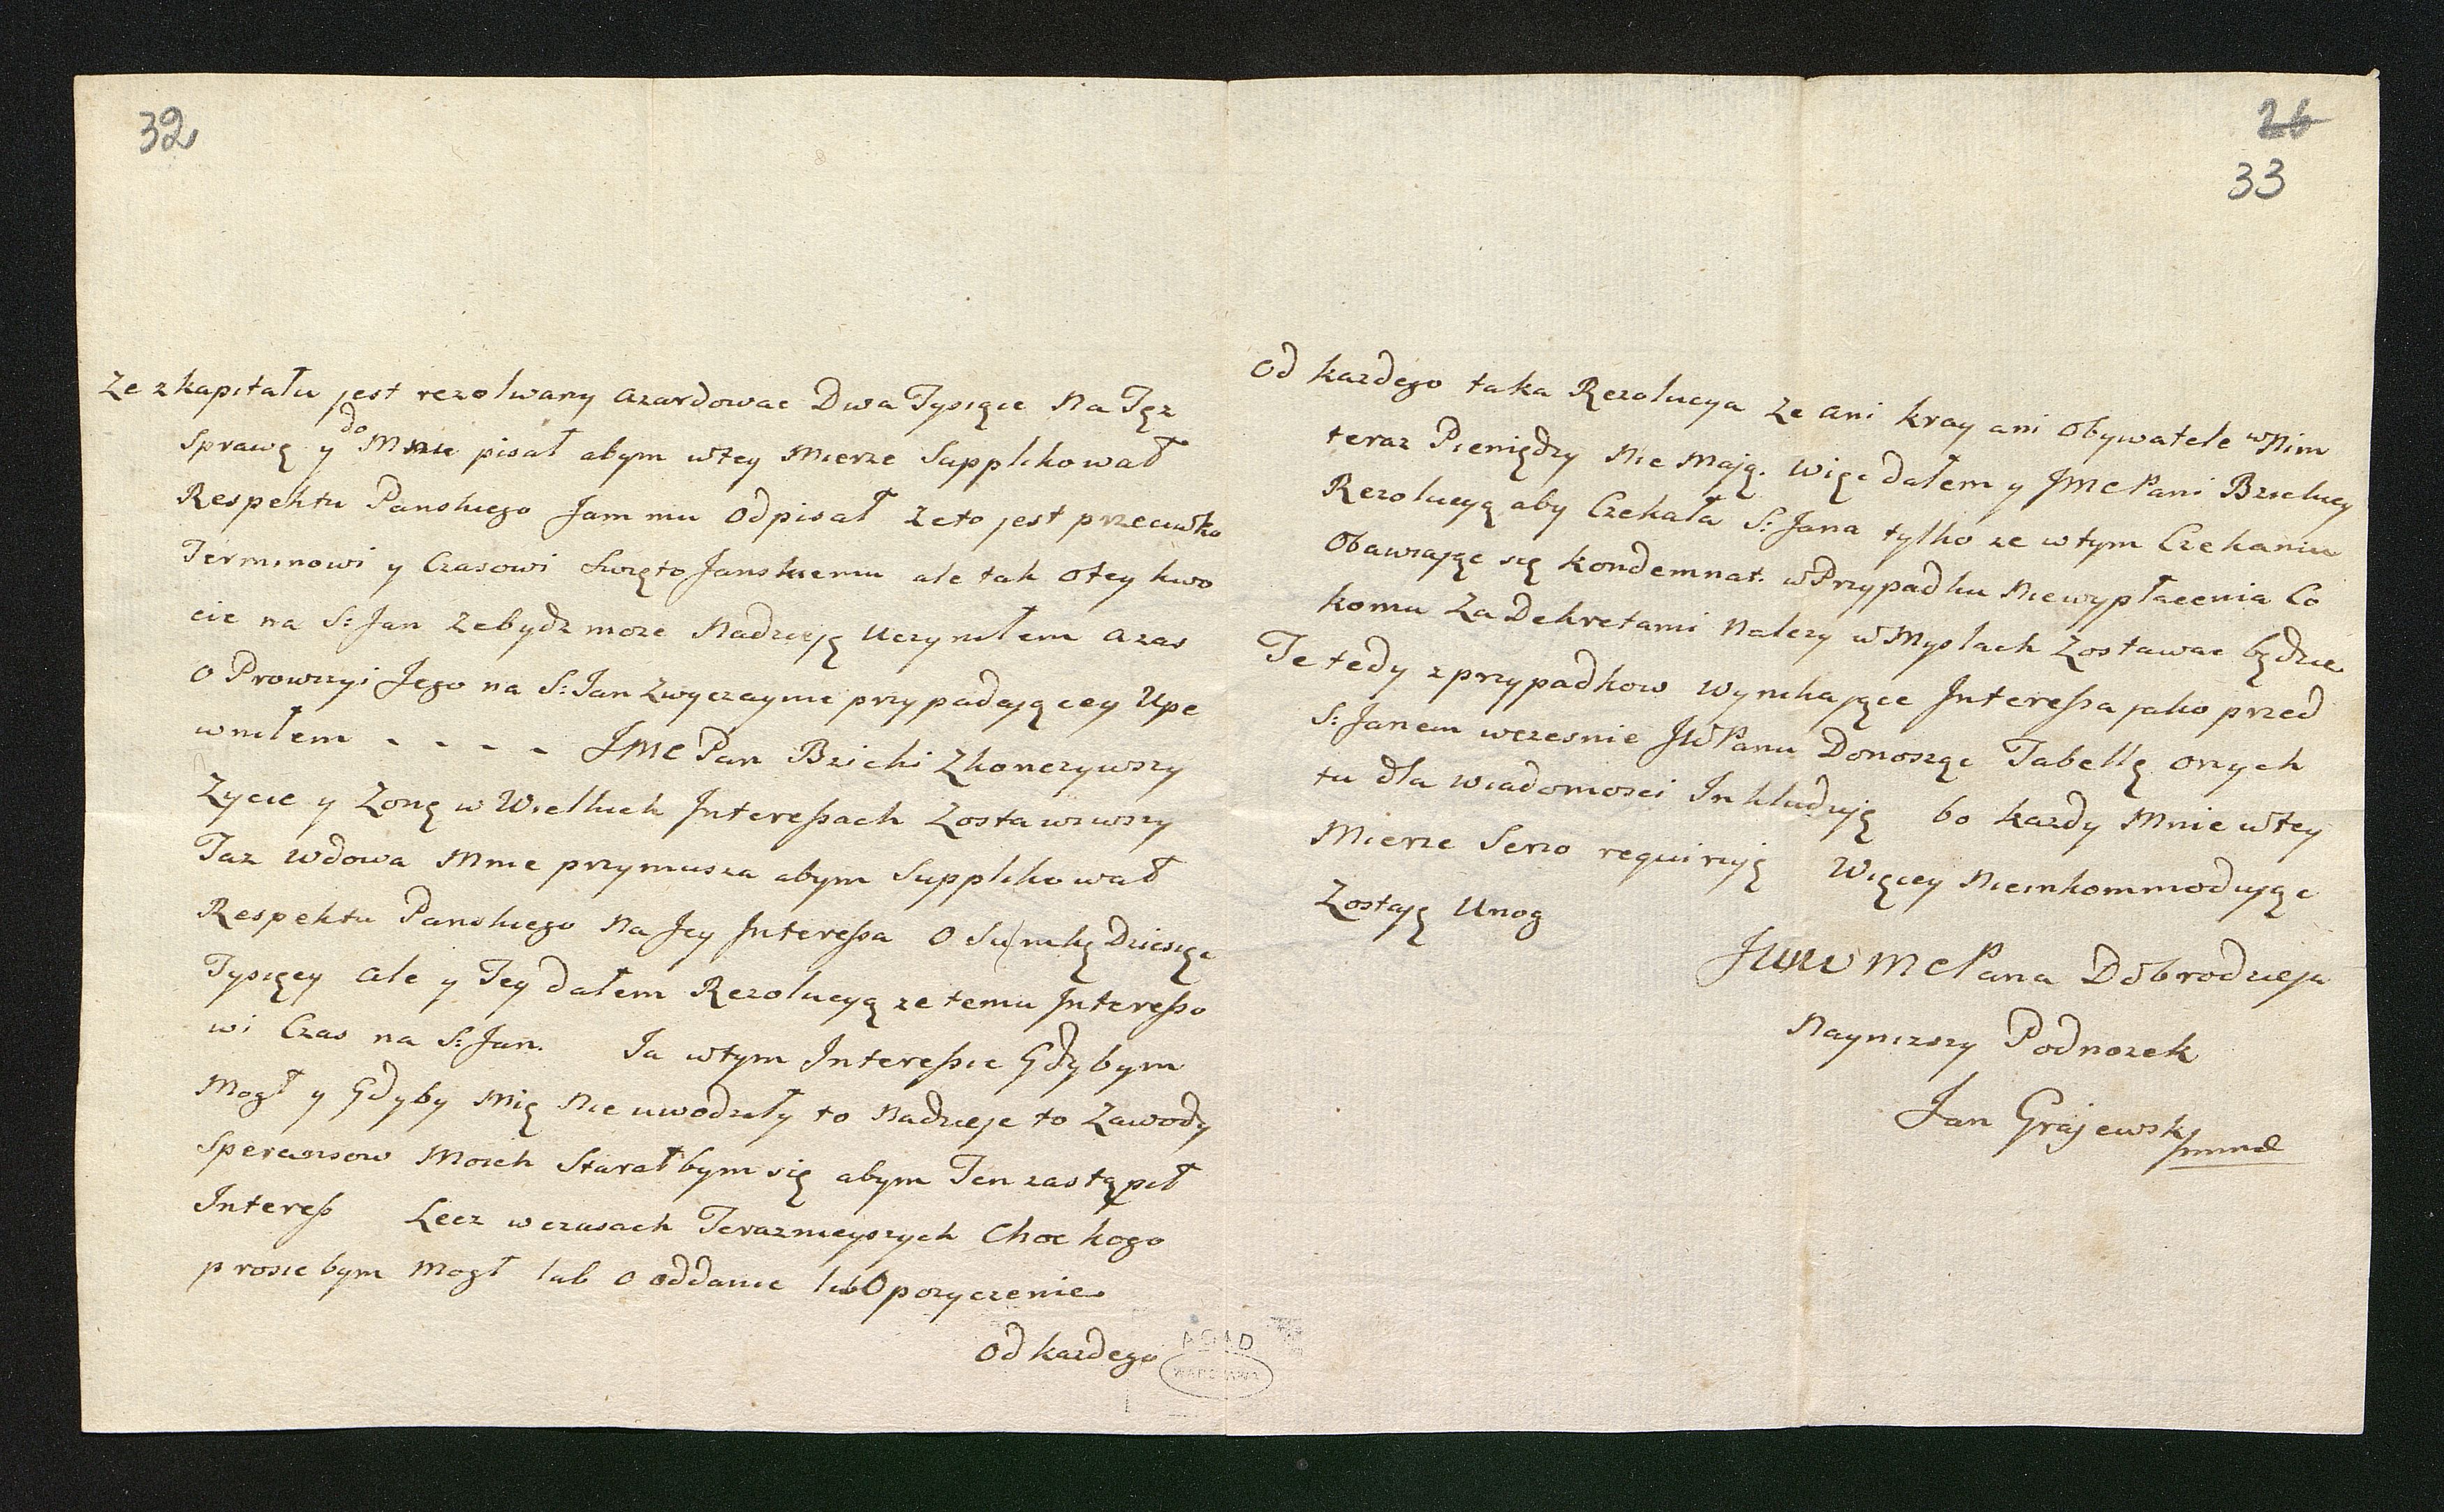 32
Ze z kapitału jest rezolwany azardowac Dwa Tysiące Na Tęz
Sprawę y do Mnie pisał abym wtey Mierze Supplikował
Respektu Panskiego Jam mu Odpisał zeto jest przeciwko
Terminowi y Czasowi SwiętoJanskiemu ale tak Otey kwo
cie na S: Jan zebydz moze Nadzieję Uczyniłem azas
O Prowizyi Jego na S: Jan Zwyczaynie przypadającey Upe
wniłem - - - - JMC Pan Bzicki Zkonczywszy
Zycie y Zonę w Wielkich Interessach Zostawiwszy
Taz Wdowa Mnie przymusza abym Supplikował
Respektu Panskiego Na Jey Interessa O Sumkę Dziesięc
Tysięcy ale y Tey dałem Rezolucyą ze temu Interesso
wi Czas na S: Jan. Ja wtym Interessie Gdybym
Mogł y Gdyby Mię Nie uwodziły to Nadzieje to Zawody
Speransow Moich Starałbym się abym Ten zastąpił
Interess Lecz w czasach Teraznieyszych Choc kogo
prosic bym Mogł lub O oddanie lub O pozyczenie
Od kazdego
ASAD
WARSZAWA
26
33
Od kazdego taka Rezolucya Ze ani kray ani Obywatele w Nim
teraz Pieniędzy Nie Mają. Więc dałem y JMC Pani Bzickiey
Rezolucyą aby Czekała S: Jana tylko ze w tym Czekaniu
Obawiając się kondemnat. w Przypadku Niewypłacenia Co
komu Za Dekretami Nalezy w Myslach Zostawac będzie
Te tedy z przypadkow Wynikające Interessa jako przed
S: Janem wczesnie JWPanu Donosząc Tabellę onych
tu dla wiadomosci Inkluduję bo kazdy Mnie wtey
Mierze Serio requiruję Więcey Nieinkommodując
Zostaję Unog
JWW MC Pana Dobrodzieja
Naynizszy Podnozek
Jan Grajewski